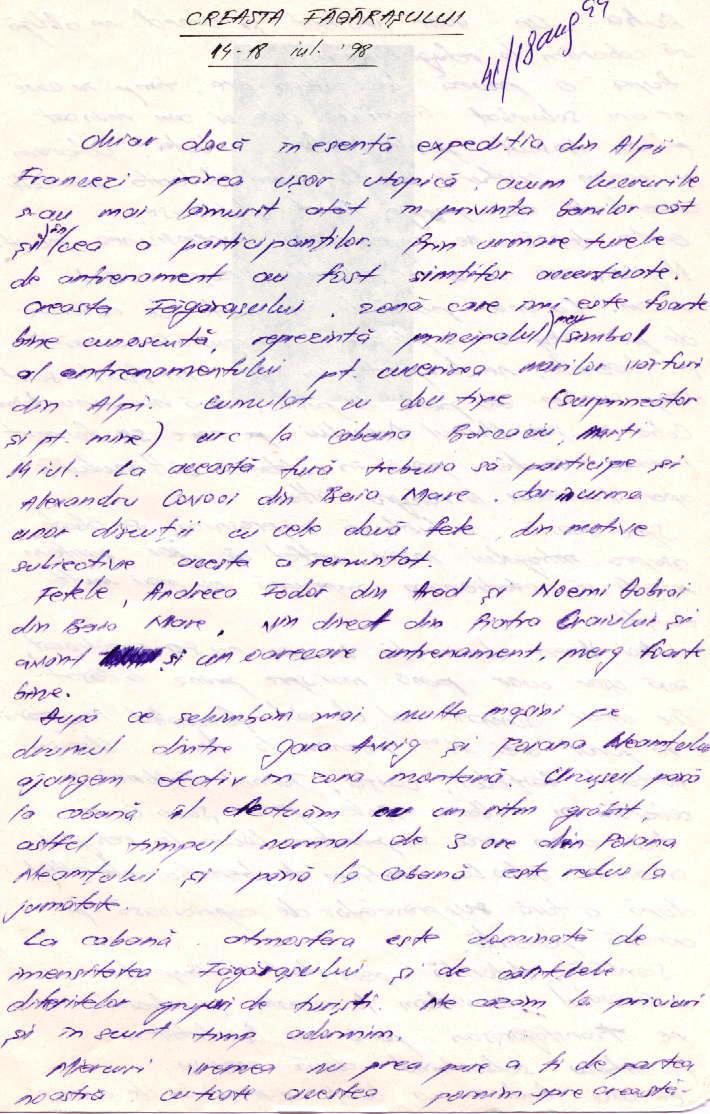 CREASTA FĂGĂRAȘULUI
14-18 iul. '98
41/18 aug 99
Chiar dacă în esență expediția din Alpii
Francezi părea ușor utopică, acum lucrurile
s-au mai lămurit atât în privința banilor cât
și în cea a participanților. Prin urmare turele
de antrenament au fost simțitor accentuate.
Creasta Făgărașului, zonă care îmi este foarte
bine cunoscută, reprezintă principalul meu simbol
al antrenamentului pt. cucerirea marilor vârfuri
din Alpi. Cumulat cu două tipe (surprinzător
și pt. mine) urc la cabana Bărcaciu, marți
14 iul. La această tură trebuia să participe și
Alexandru din Baia Mare, dar în urma
unor discuții cu cele două fete, din motive
subiective acesta a renunțat.
Fetele, Andreea Fodor din Arad și Noemi Dobrai
din Baia Mare, vin direct din Piatra Craiului și
având și un oarecare antrenament, merg foarte
bine.
După ce schimbăm mai multe mașini pe
drumul dintre gara Avrig și Poiana Neamțului
ajungem efectiv în zona montană. Urcușul până
la cabană îl efectuăm cu un ritm grăbit
astfel timpul normal de 3 ore din Poiana
Neamțului și până la cabană este redus la
jumătate.
La cabană atmosfera este dominată de
imensitatea Făgărașului și de cântecele
diferitelor grupuri de turiști. Ne cazăm la priciuri
și în scurt timp adormim.
Miercuri vremea nu prea pare a fi de partea
noastră cu toate acestea pornim spre creastă-